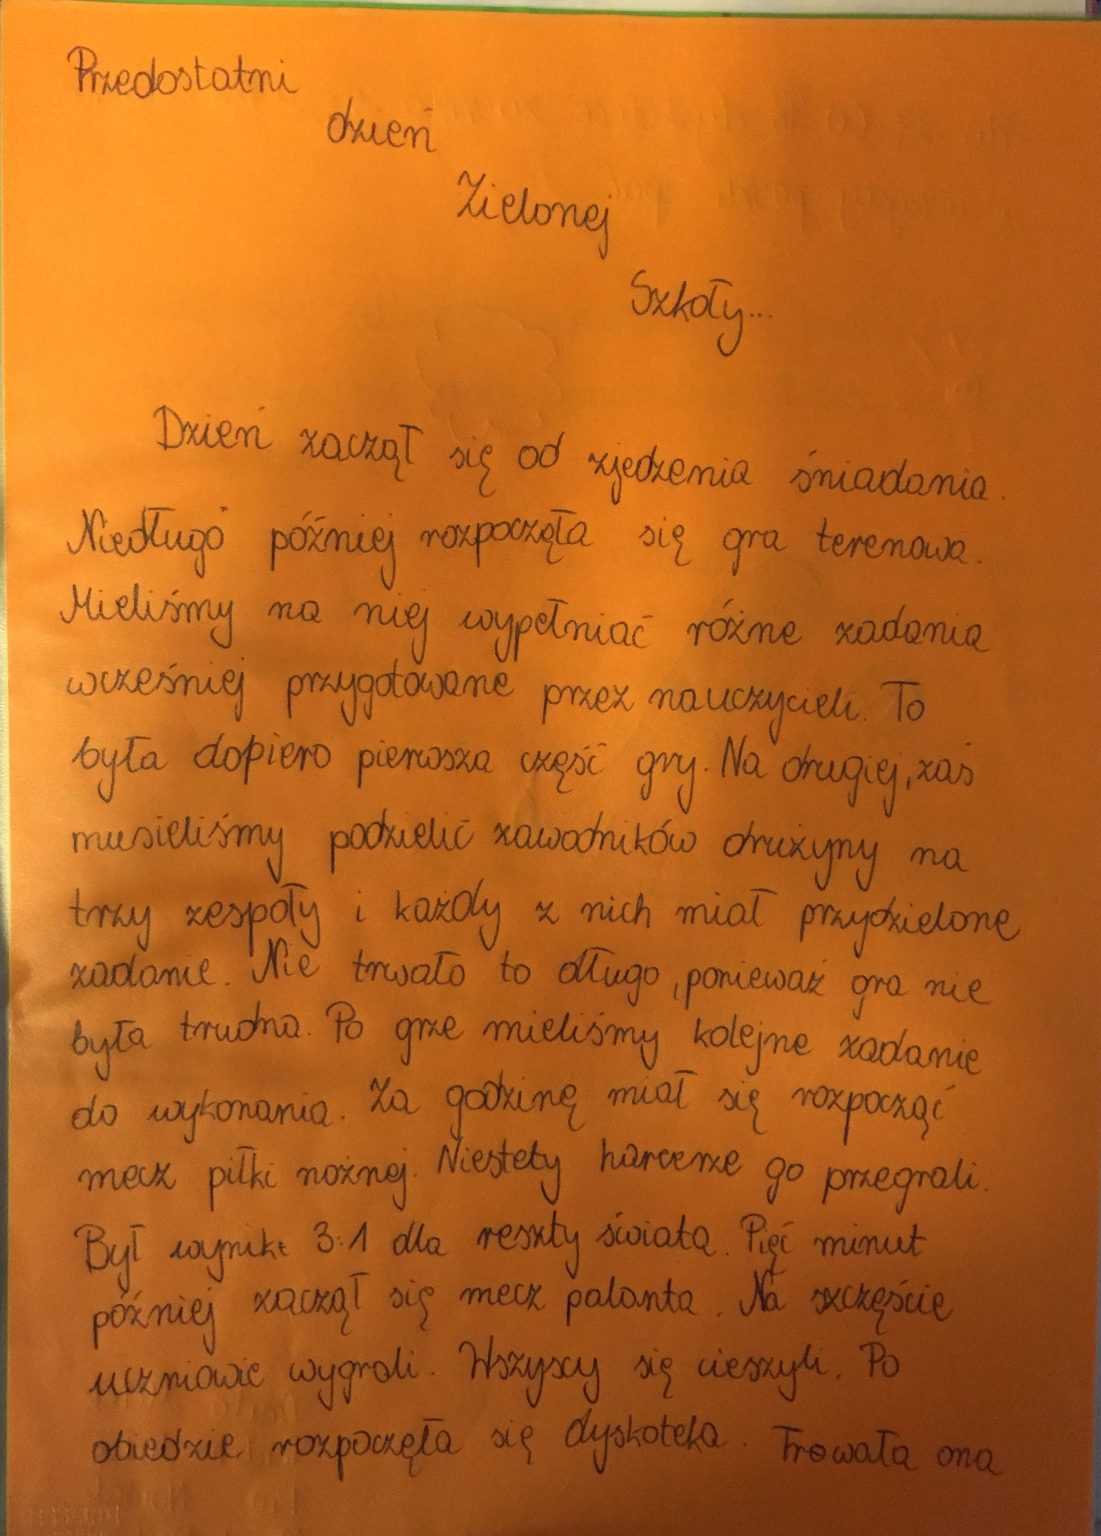 Przedostatni
dzień
Zielonej
Szkoły...
Dzień zaczął się od zjedzenia śniadania.
Niedługo później rozpoczęła się gra terenowa.
Mieliśmy na niej wypełniać różne zadania
wcześniej przygotowane przez nauczycieli. To
była dopiero pierwsza część gry. Na drugiej, zaś
musieliśmy podzielić zawodników drużyny na
trzy zespoły i każdy z nich miał przydzielone
zadanie. Nie trwało to długo, ponieważ gra nie
była trudna. Po grze mieliśmy kolejne zadanie
do wykonania. Za godzinę miał się rozpocząć
mecz piłki nożnej. Niestety harcerze go przegrali.
Był wynik 3:1 dla reszty świata. Pięć minut
później zaczął się mecz palanta. Na szczęście
uczniowie wygrali. Wszyscy się cieszyli. Po
obiedzie rozpoczęła się dyskoteka. Trowała ona